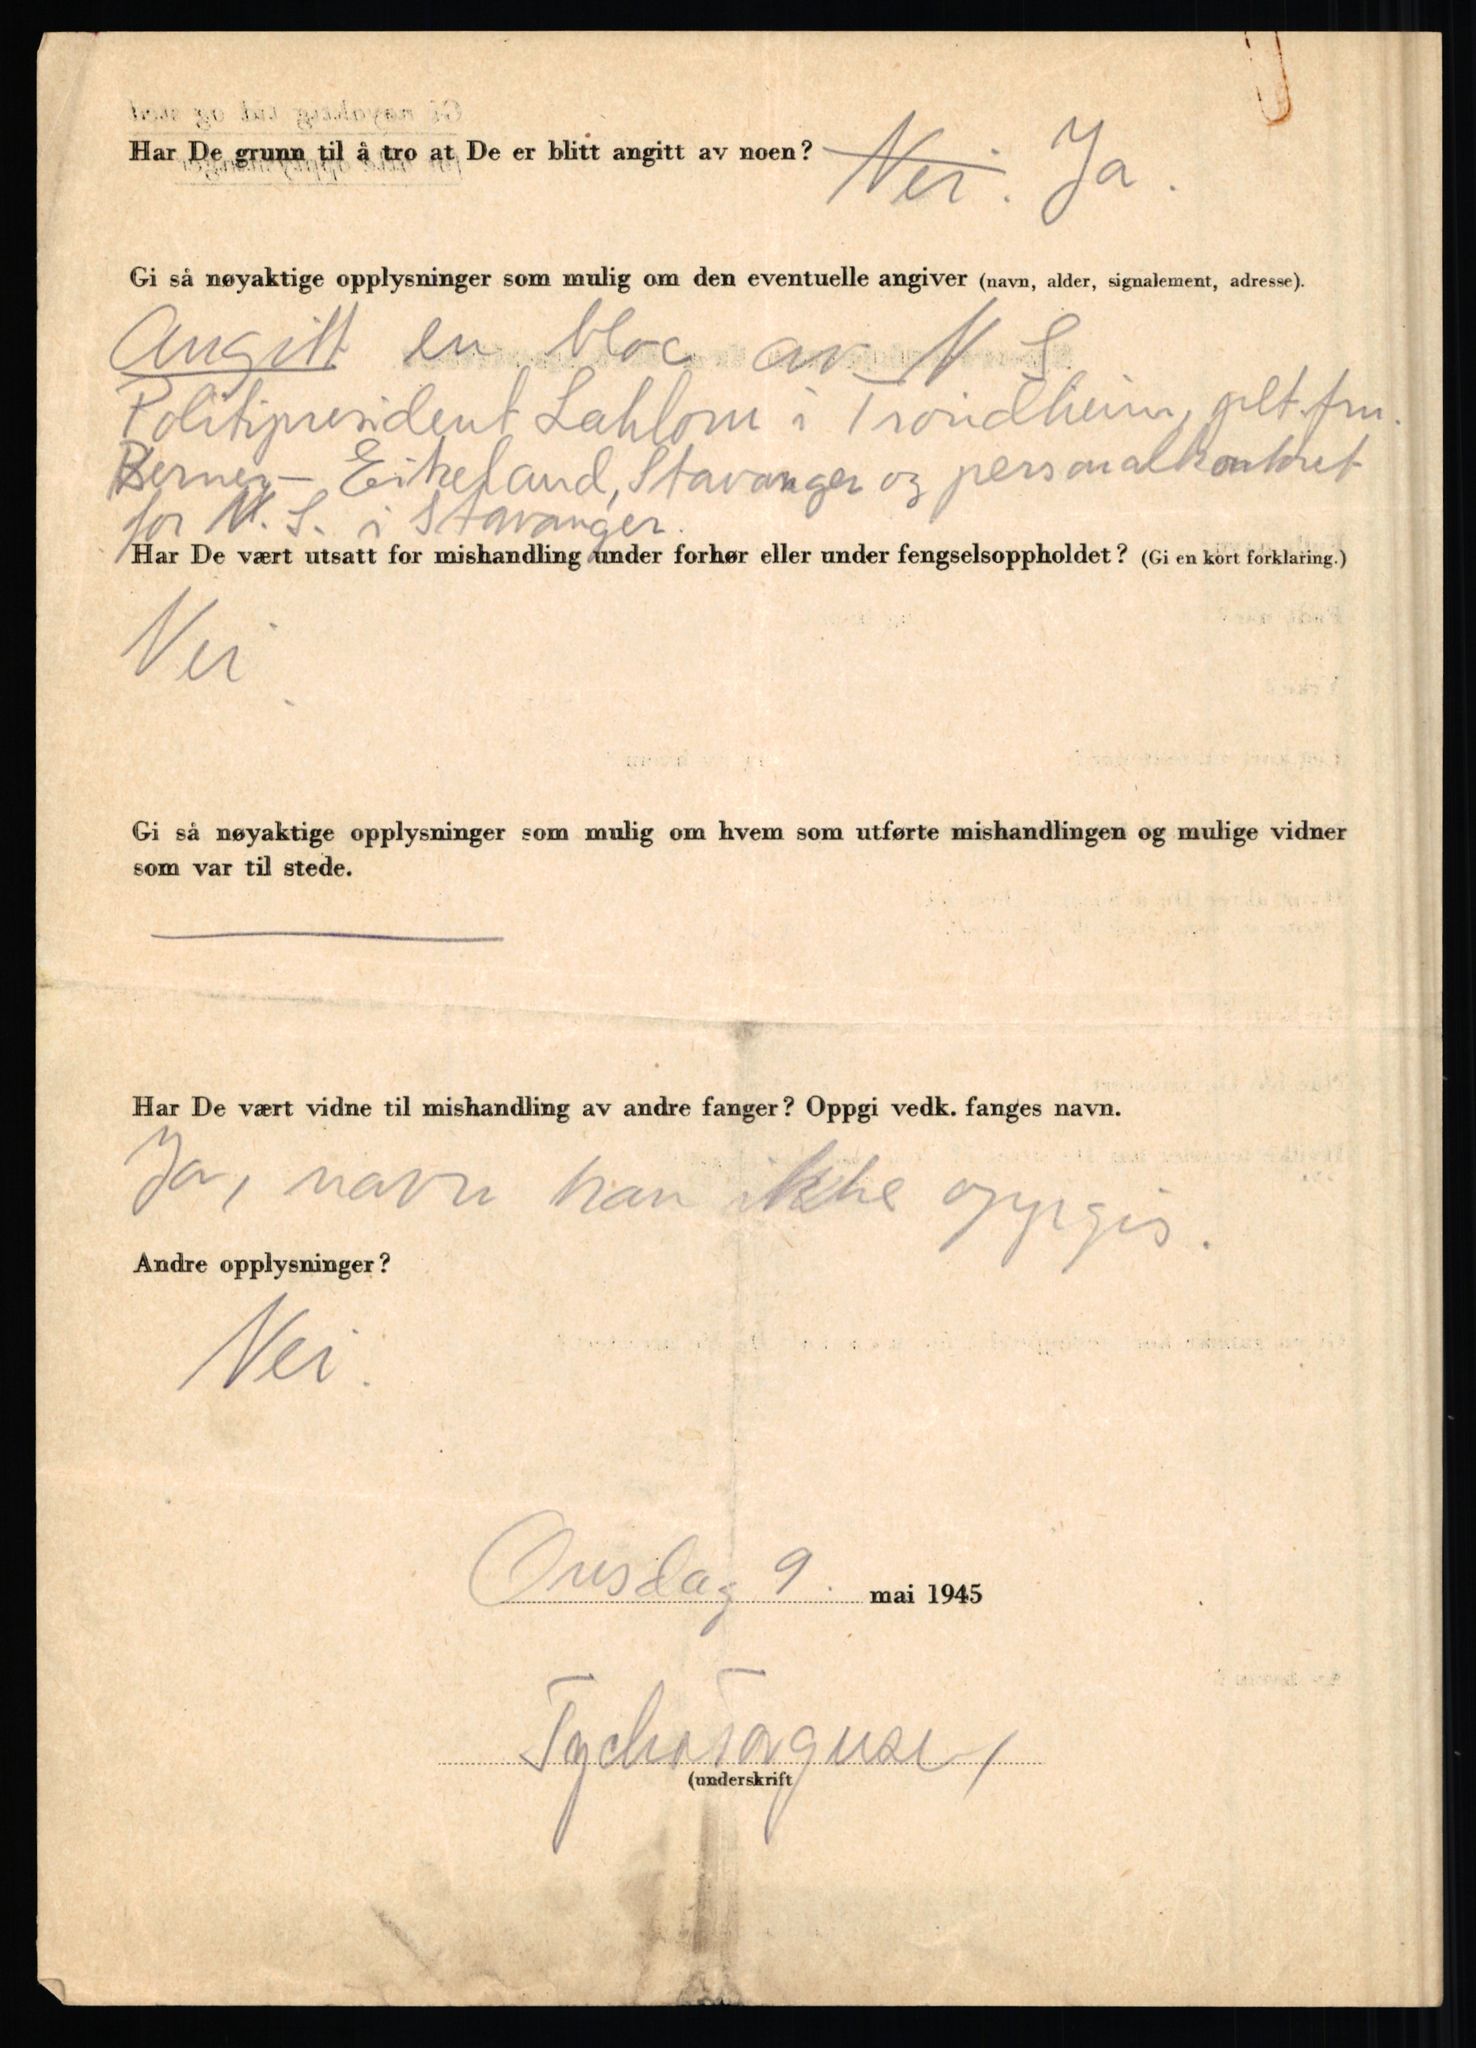 Har De grunn til å tro at De er blitt angitt av noen? Nei. Ja.
Gi så nøyaktige opplysninger som mulig om den eventuelle angiver (navn, alder, signalement, adresse).
Angitt en bloc av N S
Politipresident Lahlom i Trondheim, plt. fru.
Berner - Eikeland, Stavanger og personalkontoret
for N. S. i Stavanger.
Har De vært utsatt for mishandling under forhør eller under fengselsoppholdet? (Gi en kort forklaring.)
Nei
Gi så nøyaktige opplysninger som mulig om hvem som utførte mishandlingen og mulige vidner
som var til stede.
Har De vært vidne til mishandling av andre fanger? Oppgi vedk. fanges navn.
Ja, navn kan ikke oppgis.
Andre opplysninger?
Nei.
Onsdag 9. mai 1945
(underskrift